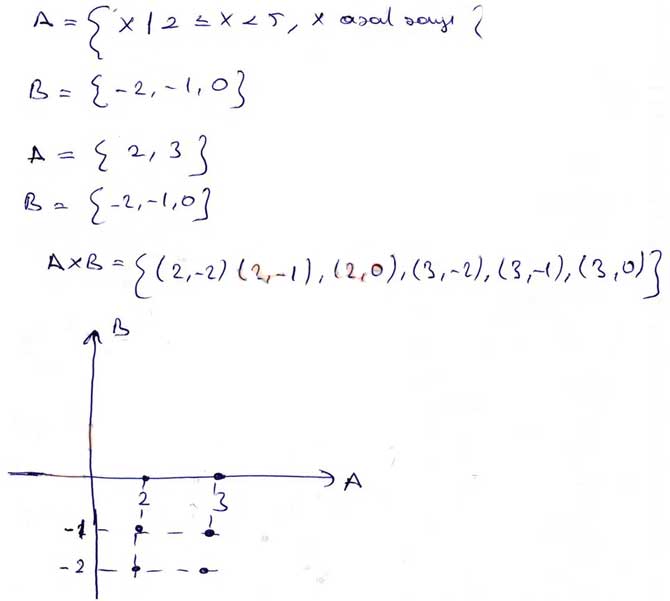 A = { x | 2 ≤ x < 5, x asal sayı {
B = {-2, -1, 0}
A = { 2, 3 }
B = {-2, -1, 0}
A×B = {(2,-2) (2,-1), (2,0), (3,-2), (3,-1), (3,0)}
B
A
2 3
-1
-2